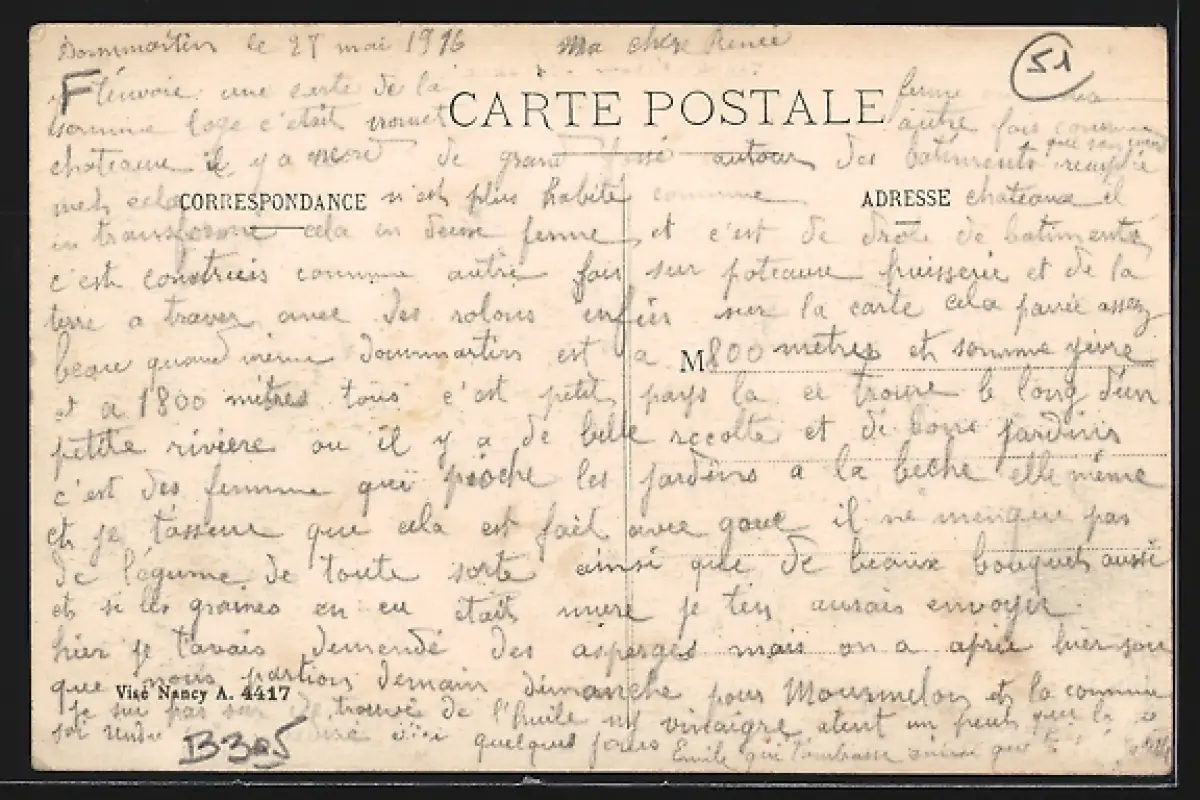 Dommartin le 27 mai 1916 Ma chère Renée
51
F t'envoie une carte de la ferme
CARTE POSTALE
somme loge c'était autre fois comme
chateaux il y a de grand fossé autour des batiments
CORRESPONDANCE n'est plus habité comme ADRESSE chateaux il
transforme cela en deuse ferme et c'est de drole de batiments
c'est construis comme autre fois sur poteaux et de la
terre a traver avec des enfin sur la carte cela assez
beau quand même dommartin est a M800 mètres et somme yèvre
et a 1800 mètres tous c'est petit pays la ce trouve le long d'un
petite rivière ou il y a de belle recolte et de bons jardins
c'est des femme qui pioche les jardins a la beche elle même
et je t'asseur que cela est fait avec gout il ne menque pas
de légume de toute sorte ainsi que de beaux bouquets aussi
et si les graines en eu était mure je ten aurais envoyer
hier je t'avais demendé des asperges mais on a aprie hier soir
que nous partions demain dimanche pour Mourmelon et la comme
Visé Nancy A. 4417
je sui pas sur de trouvé de l'huile ny vinaigre atent un peut que
soi rendu B305 quelques jours Emile qui t'embrasse ainsi que